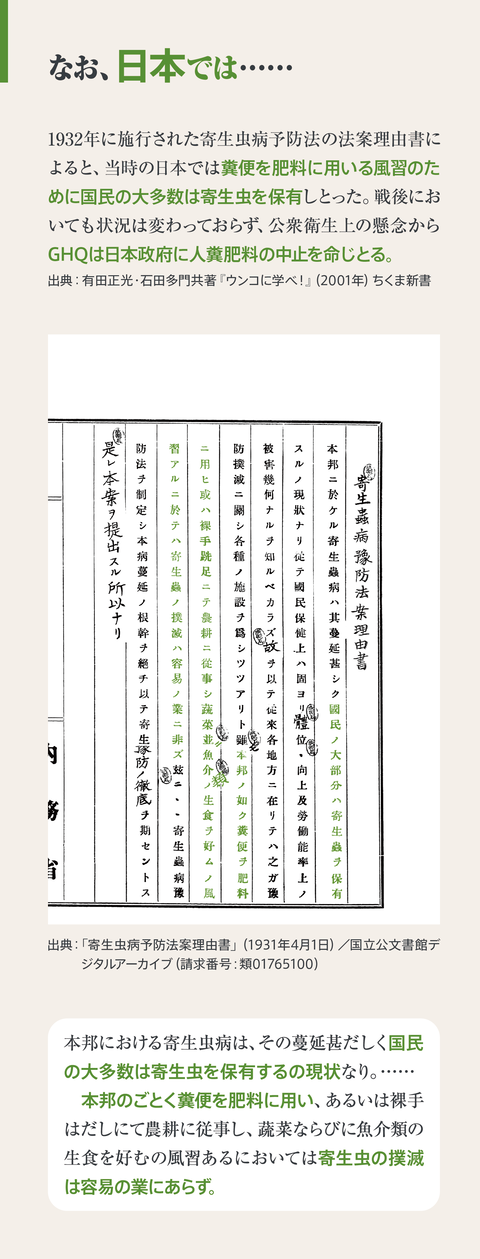 なお、日本では……
1932年に施行された寄生虫病予防法の法案理由書に
よると、当時の日本では糞便を肥料に用いる風習のた
めに国民の大多数は寄生虫を保有しとった。戦後にお
いても状況は変わっておらず、公衆衛生上の懸念から
GHQは日本政府に人糞肥料の中止を命じとる。
出典：有田正光・石田多門共著『ウンコに学べ！』（2001年）ちくま新書
寄生蟲病豫防法案理由書
本邦ニ於ケル寄生蟲病ハ其蔓延甚シク國民ノ大部分ハ寄生蟲ヲ保有
スルノ現狀ナリ從テ國民保健上ハ固ヨリ體位、向上及勞働能率上ノ
被害幾何ナルヲ知ルベカラズ故ヲ以テ從來各地方ニ在リテハ之ガ豫
防撲滅ニ關シ各種ノ施設ヲ爲シツツアリト雖モ本邦ノ如ク糞便ヲ肥料
ニ用ヒ或ハ裸手跣足ニテ農耕ニ從事シ蔬菜並魚介ノ生食ヲ好ムノ風
習アルニ於テハ寄生蟲ノ撲滅ハ容易ノ業ニ非ズ玆ニ、、寄生蟲病豫
防法ヲ制定シ本病蔓延ノ根幹ヲ絕チ以テ寄生蟲豫防ノ徹底ヲ期セントス
是レ本案ヲ提出スル所以ナリ
內務省
出典：「寄生虫病予防法案理由書」（1931年4月1日）／国立公文書館デ
ジタルアーカイブ（請求番号：類01765100）
本邦における寄生虫病は、その蔓延甚だしく国民
の大多数は寄生虫を保有するの現状なり。……
本邦のごとく糞便を肥料に用い、あるいは裸手
はだしにて農耕に従事し、蔬菜ならびに魚介類の
生食を好むの風習あるにおいては寄生虫の撲滅
は容易の業にあらず。